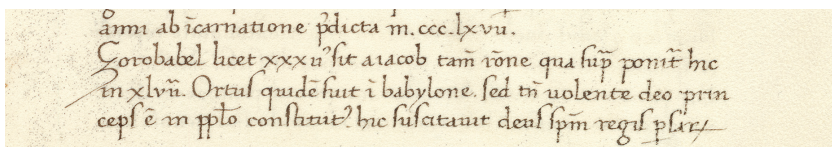 anni ab īcarnatione p̄dicta m̄. ccc. lxvii.
Zorobabel licet xxxuꝰ sit a iacob tam̄ r̄one qua sup̄ ponit᷑ hic
in xlvii. Ortus quidē fuit ī babylone. sed tn̄ uolente deo prin
ceps ē in pp̄lo constitutꝰ. hic suscitauit deus sp̄m regis